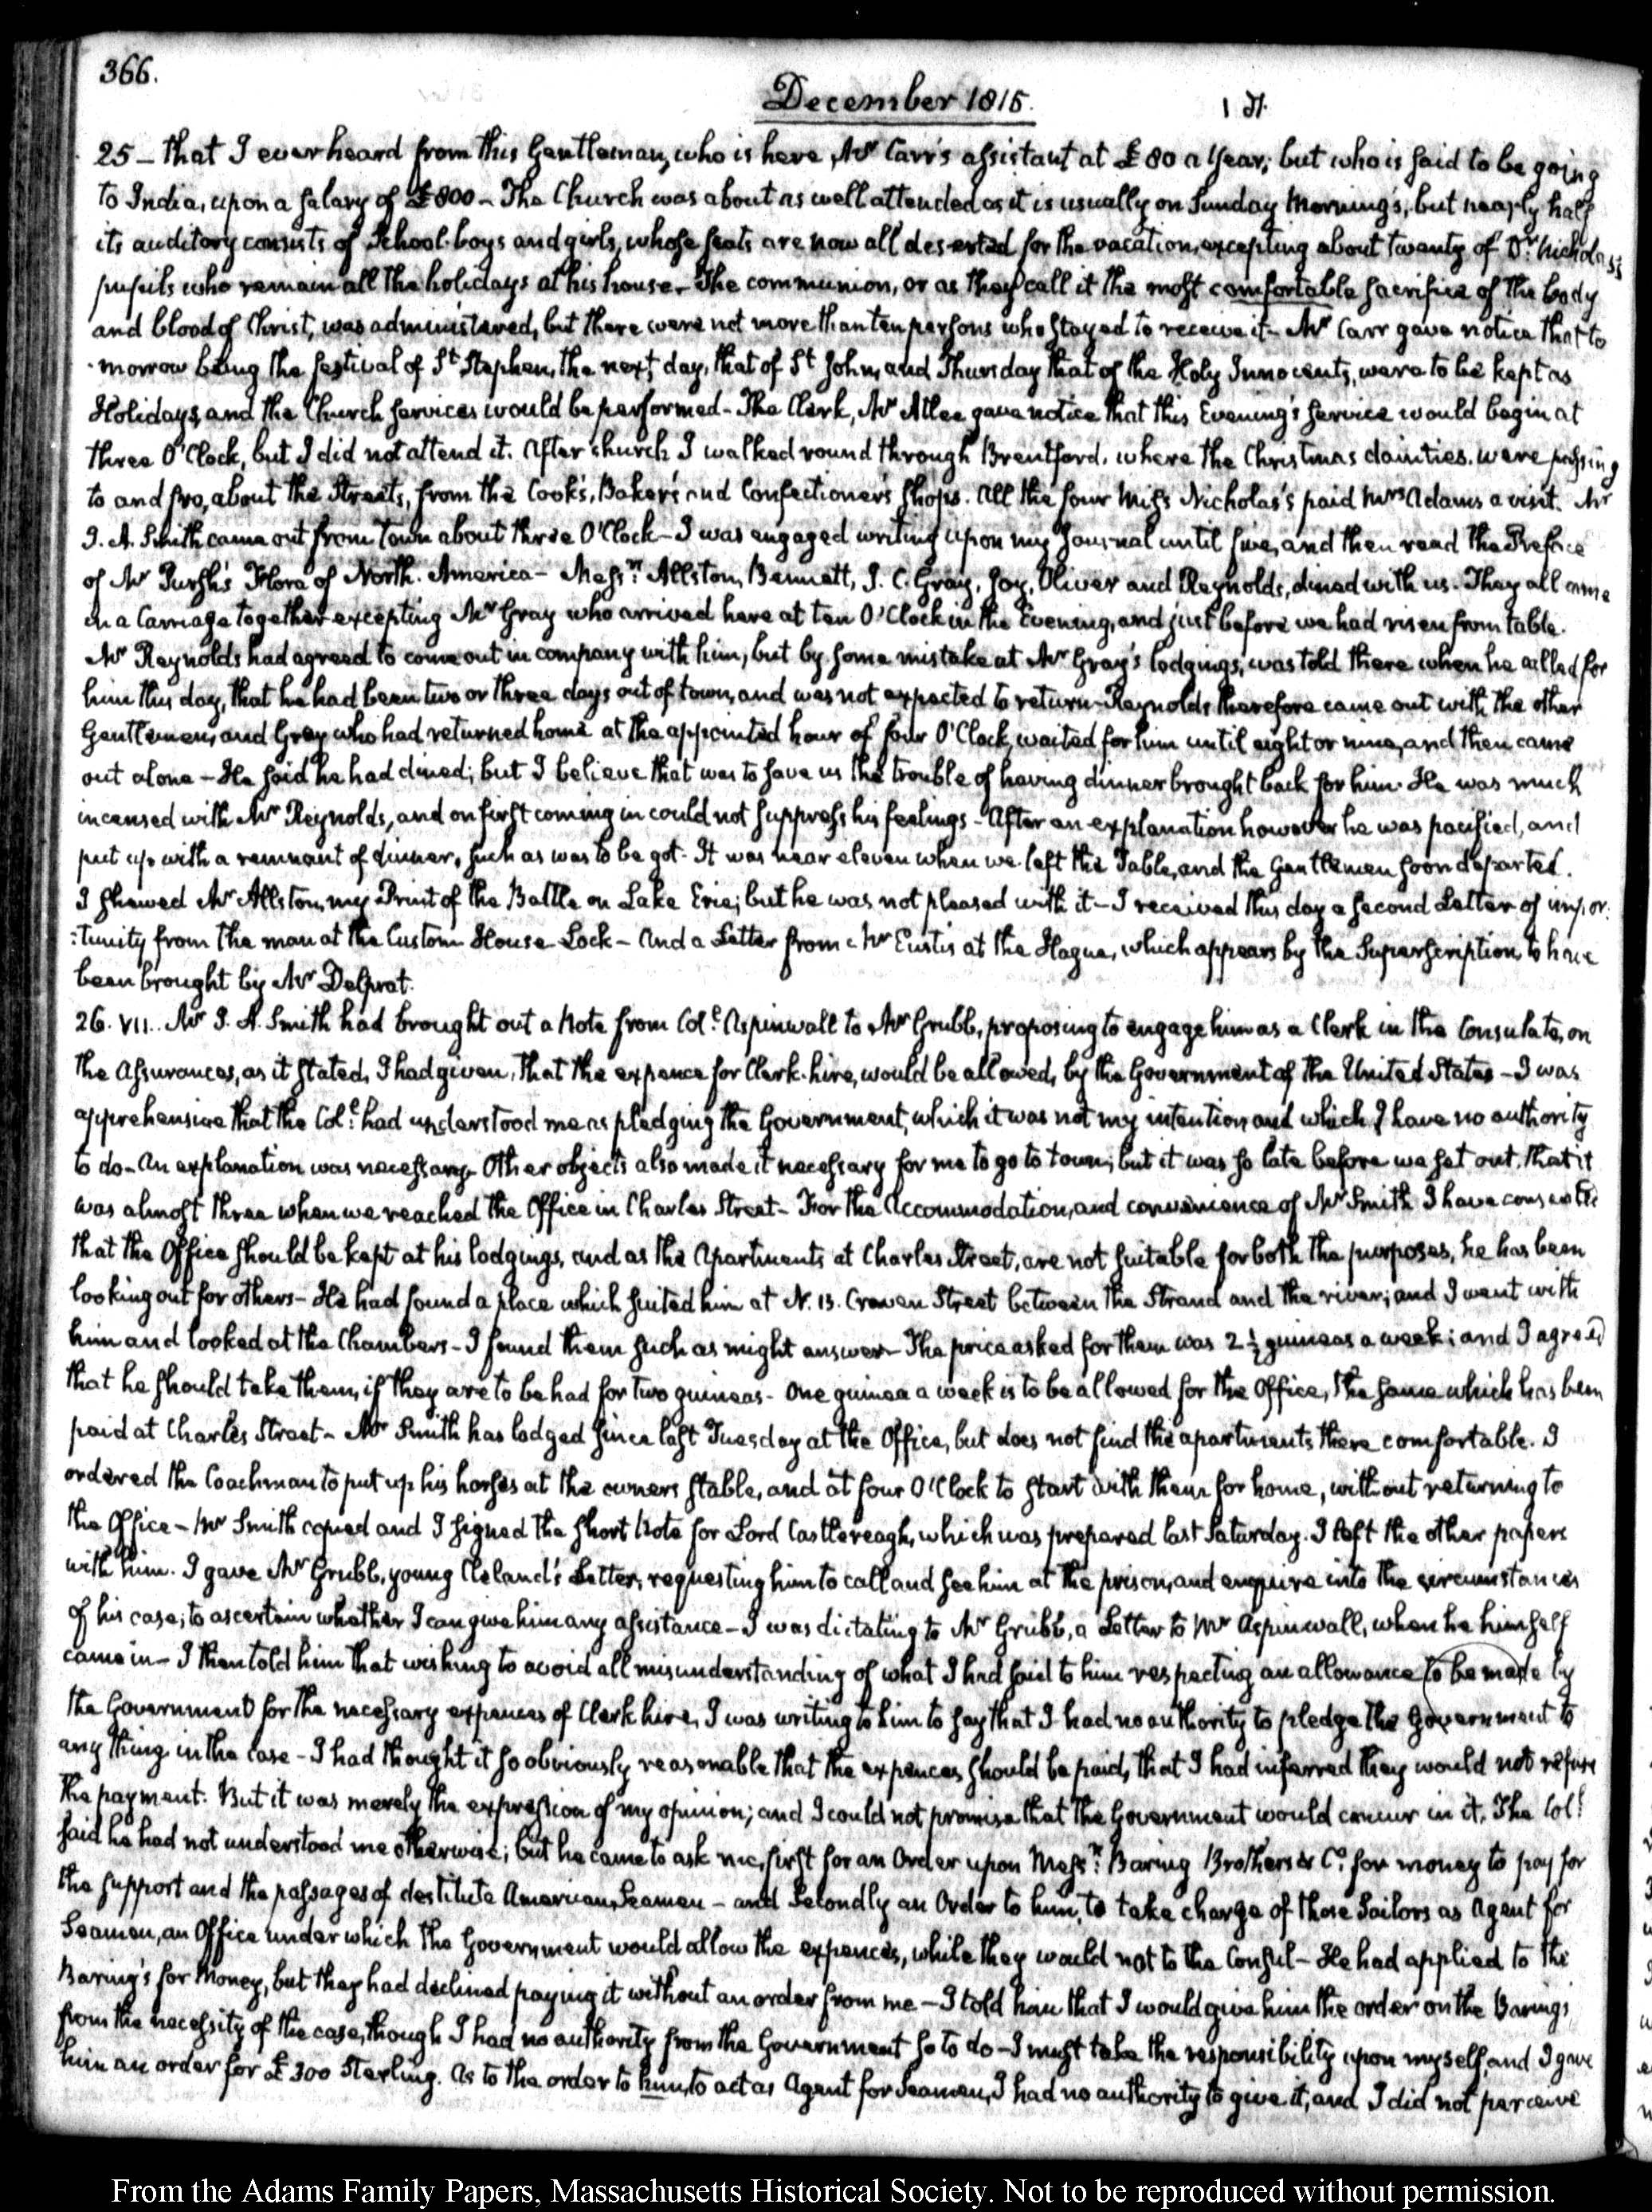 366.
December 1815.
25 – that I ever heard from this Gentleman, who is here, Mr Carr's assistant at £80 a Year; but who is said to be going
to India, upon a salary of £800 – The Church was about as well attended as it is usually on Sunday Morning's, but nearly half
its auditory consists of School-boys and girls, whose seats are now all deserted for the vacation, excepting about twenty of Dr. Nicholas's
pupils who remain all the holidays at his house – The communion, or as they call it the most comfortable sacrifice of the body
and blood of Christ, was administered, but there were not more than ten persons who stayed to receive it – Mr Carr gave notice that to
morrow being the festival of St Stephen, the next day, that of St John, and Thursday that of the Holy Innocents, were to be kept as
Holidays, and the Church services would be performed – The Clerk, Mr Atlee gave notice that this Evening's service would begin at
three O'Clock, but I did not attend it. After church I walked round through Brentford, where the Christmas dainties were passing
to and fro, about the Streets, from the Cook's, Baker's and Confectioner's shops. All the four Miss Nicholas's paid Mrs Adams a visit. Mr
J. A. Smith came out from town about three O'Clock – I was engaged writing upon my Journal until five, and then read the Preface
of Mr Pursh's Flora of North America – Messrs Allston, Bennett, J. C. Gray, Joy, Oliver and Reynolds, dined with us. They all came
in a Carriage together excepting Mr Gray who arrived here at ten O'Clock in the Evening, and just before we had risen from table.
Mr Reynolds had agreed to come out in company with him, but by some mistake at Mr Gray's lodgings, was told there when he called for
him this day, that he had been two or three days out of town, and was not expected to return – Reynolds therefore came out with the other
Gentlemen, and Gray who had returned home at the appointed hour of four O'Clock, waited for him until eight or nine, and then came
out alone – He said he had dined; but I believe that was to save us the trouble of having dinner brought back for him. He was much
incensed with Mr Reynolds, and on first coming in could not suppress his feelings – After an explanation however he was pacified, and
put up with a remnant of dinner, such as was to be got. It was near eleven when we left the Table, and the Gentlemen soon departed.
I shewed Mr Allston, my Print of the Battle on Lake Erie; but he was not pleased with it – I received this day a second Letter of impor:
:tunity from the man at the Custom House Lock – And a Letter from Mr Eustis at the Hague, which appears by the Superscription, to have
been brought by Mr Delprat.
26. VII.. Mr J. A. Smith had brought out a Note from Coll. Aspinwall to Mr Grubb, proposing to engage him as a Clerk in the Consulate, on
the Assurances, as it stated, I had given, that the expence for Clerk-hire, would be allowed, by the Government of the United States – I was
apprehensive that the Coll. had understood me as pledging the Government, which it was not my intention and which I have no authority
to do – An explanation was necessary – Other objects also made it necessary for me to go to town; but it was so late before we set out, that it
was almost three when we reached the Office in Charles Street – For the Accommodation, and convenience of Mr Smith I have consented
that the Office should be kept at his lodgings, and as the Apartments at Charles Street, are not suitable for both the purposes, he has been
looking out for others – He had found a place which suited him at N. 13. Craven Street between the Strand and the river; and I went with
him and looked at the Chambers – I found them such as might answer – The price asked for them was 2½ guineas a week; and I agreed
that he should take them, if they are to be had for two guineas – One guinea a week is to be allowed for the Office, the same which has been
paid at Charles Street – Mr Smith has lodged since last Tuesday at the Office, but does not find the apartments there comfortable. I
ordered the Coachman to put up his horses at the owners stable, and at four O'Clock to start with them for home, without returning to
the Office – Mr Smith copied and I signed the short Note for Lord Castlereagh, which was prepared last Saturday. I left the other papers
with him. I gave Mr Grubb, young Cleland's Letter, requesting him to call and see him at the prison, and enquire into the circumstances
of his case; to ascertain whether I can give him any assistance – I was dictating to Mr Grubb, a Letter to Mr Aspinwall, when he himself
came in – I then told him that wishing to avoid all misunderstanding of what I had said to him respecting an allowance to be made by
the Government for the necessary expences of Clerk hire, I was writing to him to say that I had no authority to pledge the Government to
any thing in the case – I had thought it so obviously reasonable that the expences should be paid, that I had inferred they would not refuse
the payment. But it was merely the expression of my opinion; and I could not promise that the Government would concur in it. The Coll.
said he had not understood me otherwise; but he came to ask me, first for an Order upon Messrs. Baring Brothers & Co. for money to pay for
the support and the passages of destitute American Seamen – and Secondly an Order to him, to take charge of those Sailors as Agent for
Seamen, an Office under which the Government would allow the expences, while they would not to the Consul – He had applied to the
Baring's for Money, but they had declined paying it without an order from me – I told him that I would give him the order on the Barings,
from the necessity of the case, though I had no authority from the Government so to do – I must take the responsibility upon myself, and I gave
him an order for £300 Sterling. As to the order to him, to act as Agent for Seamen, I had no authority to give it, and I did not perceive
From the Adams Family Papers, Massachusetts Historical Society. Not to be reproduced without permission.